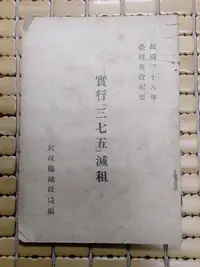 民國三十八年
臺灣省政紀要
實行「三七五」減租
民政廳地政局編